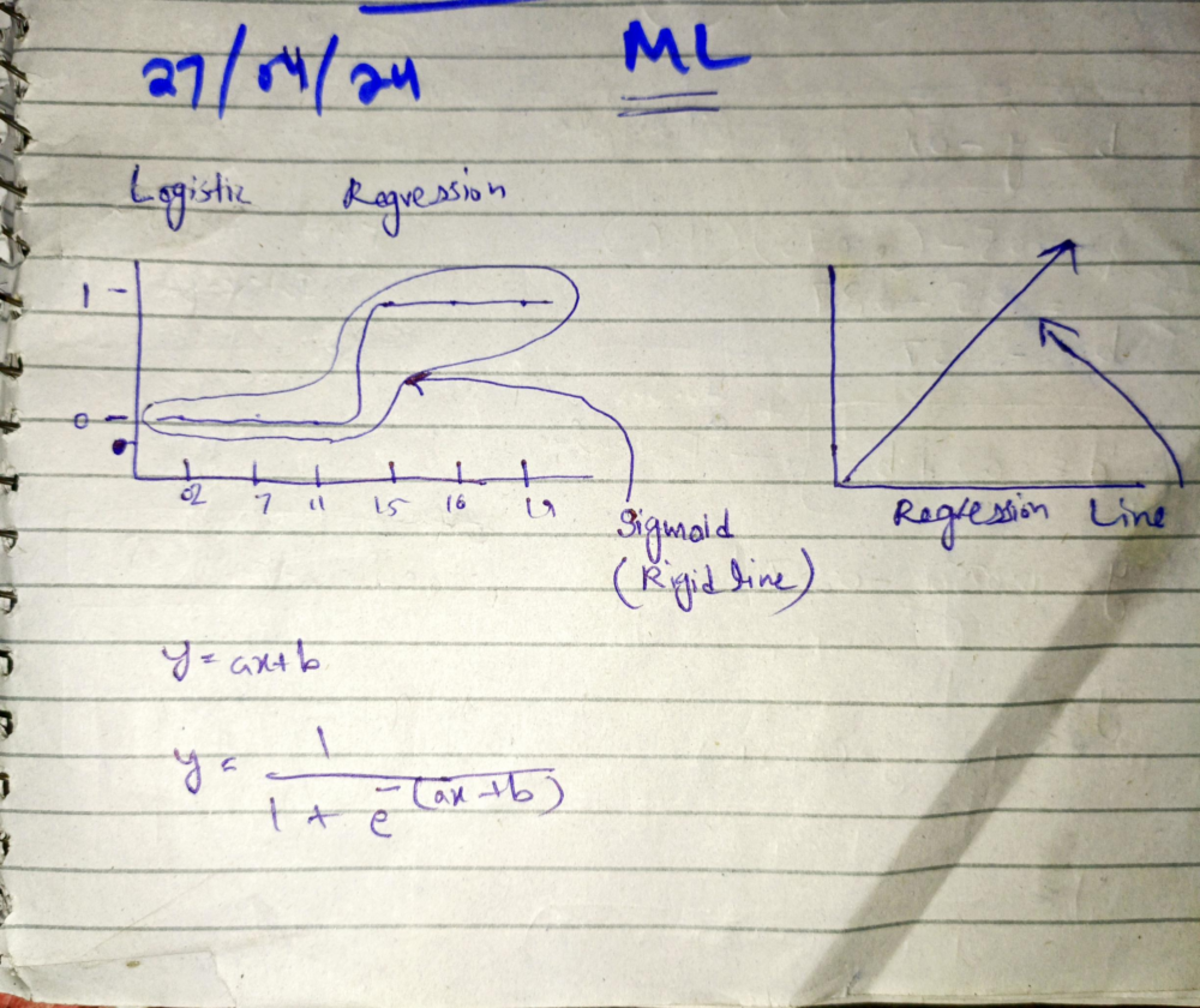 27/04/24
ML
Logistic Regression
1
0
02 7 11 15 16 19
Sigmoid
(Rigid line)
Regression Line
y = ax+b
y = 1 / 1 + e^-(ax+b)